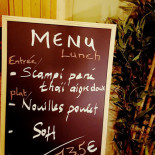 MENU
Lunch
Entrée:
- Scampi pané
thaï aigre doux
plat:
- Nouilles poulet
- Soft
13.5€